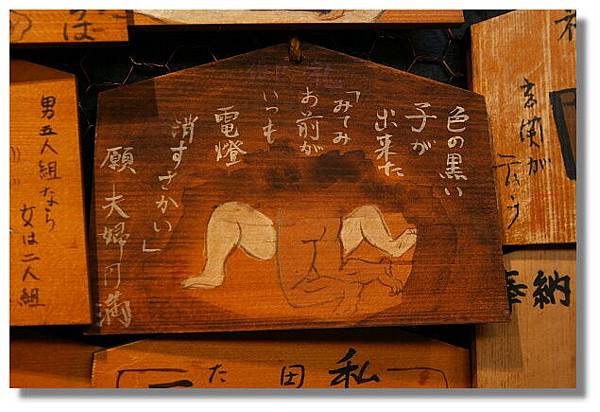 色の黒い
子が
出来た
「みてみ
お前が
いつも
電燈
消すさかい」
願 夫婦円満
男五人組なら
女は二人組
玄関が
奉納
私
田
た